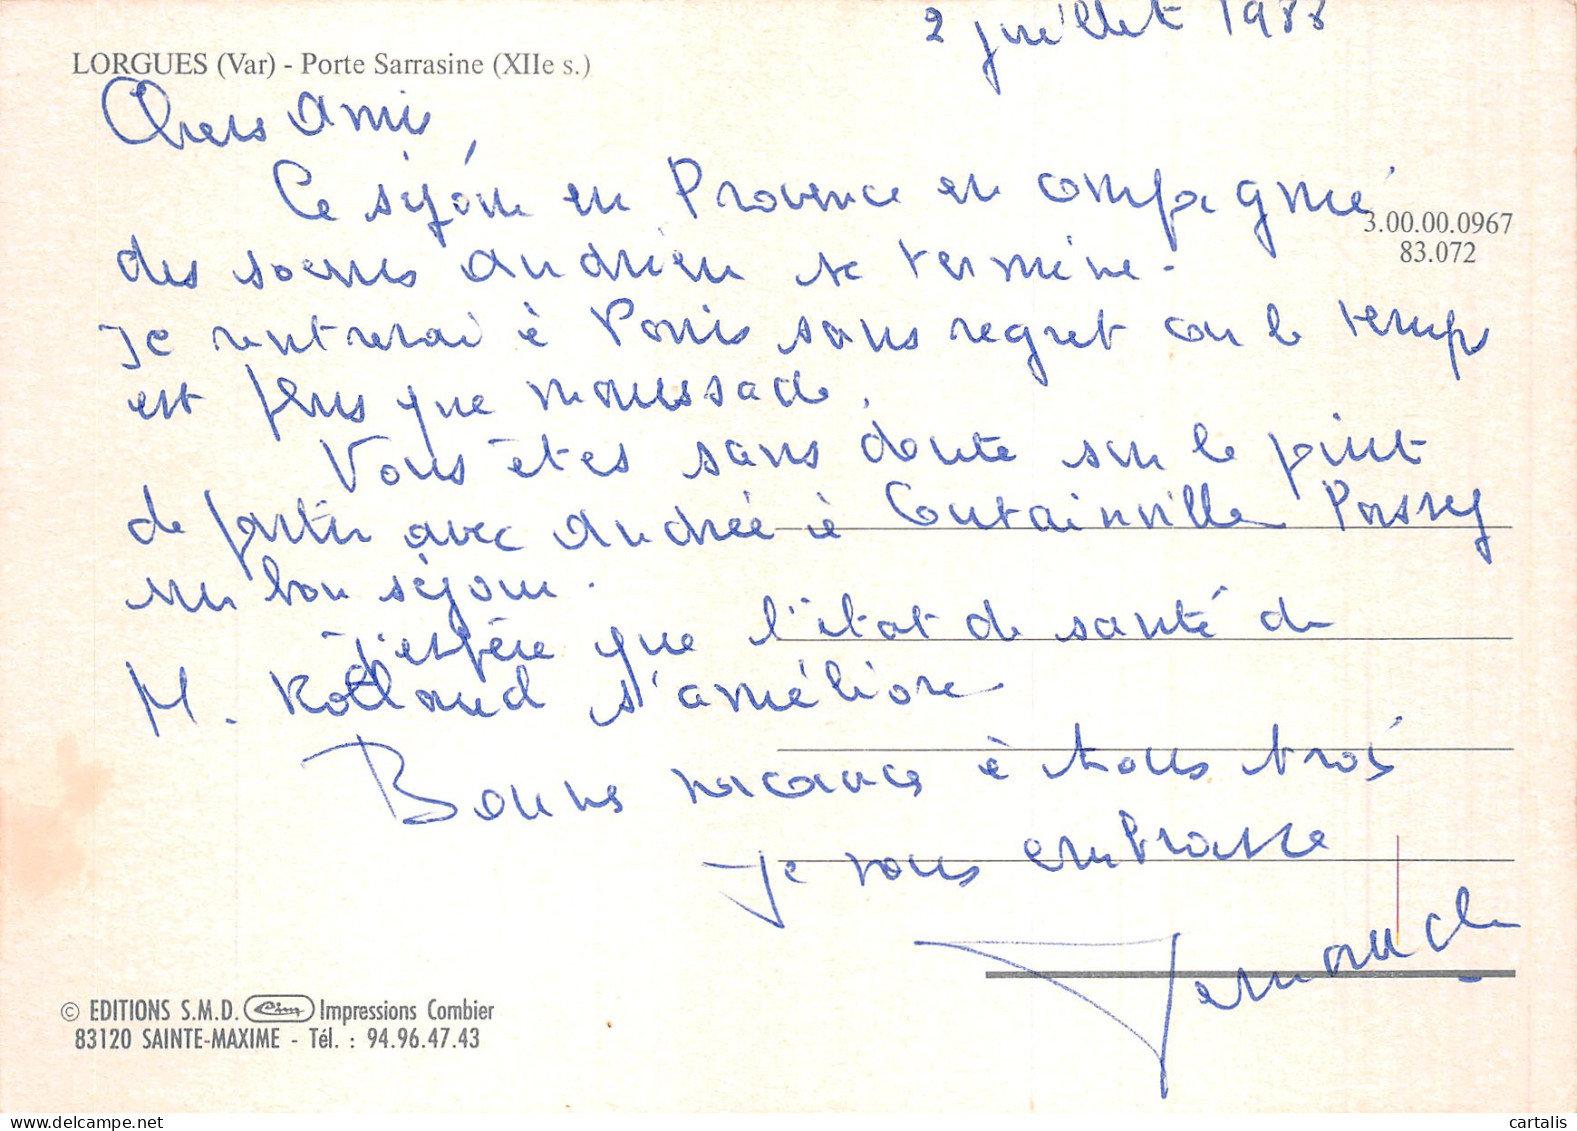 2 juillet 1988
LORGUES (Var) - Porte Sarrasine (XIIe s.)
Chers Amis,
Ce séjour en Provence en compagnie
3.00.00.0967
83.072
des soeurs Andrieu se termine.
Je rentrerai à Paris sans regret car le temps
est plus que maussade.
Vous êtes sans doute sur le point
de partir avec Andrée à Coutainville Passez
un bon séjour.
J'espère que l'état de santé de
M. Rolland s'améliore
Bonnes vacances à tous trois
Je vous embrasse
Fernande
© EDITIONS S.M.D. Cim Impressions Combier
83120 SAINTE-MAXIME - Tél. : 94.96.47.43
cartalis.com